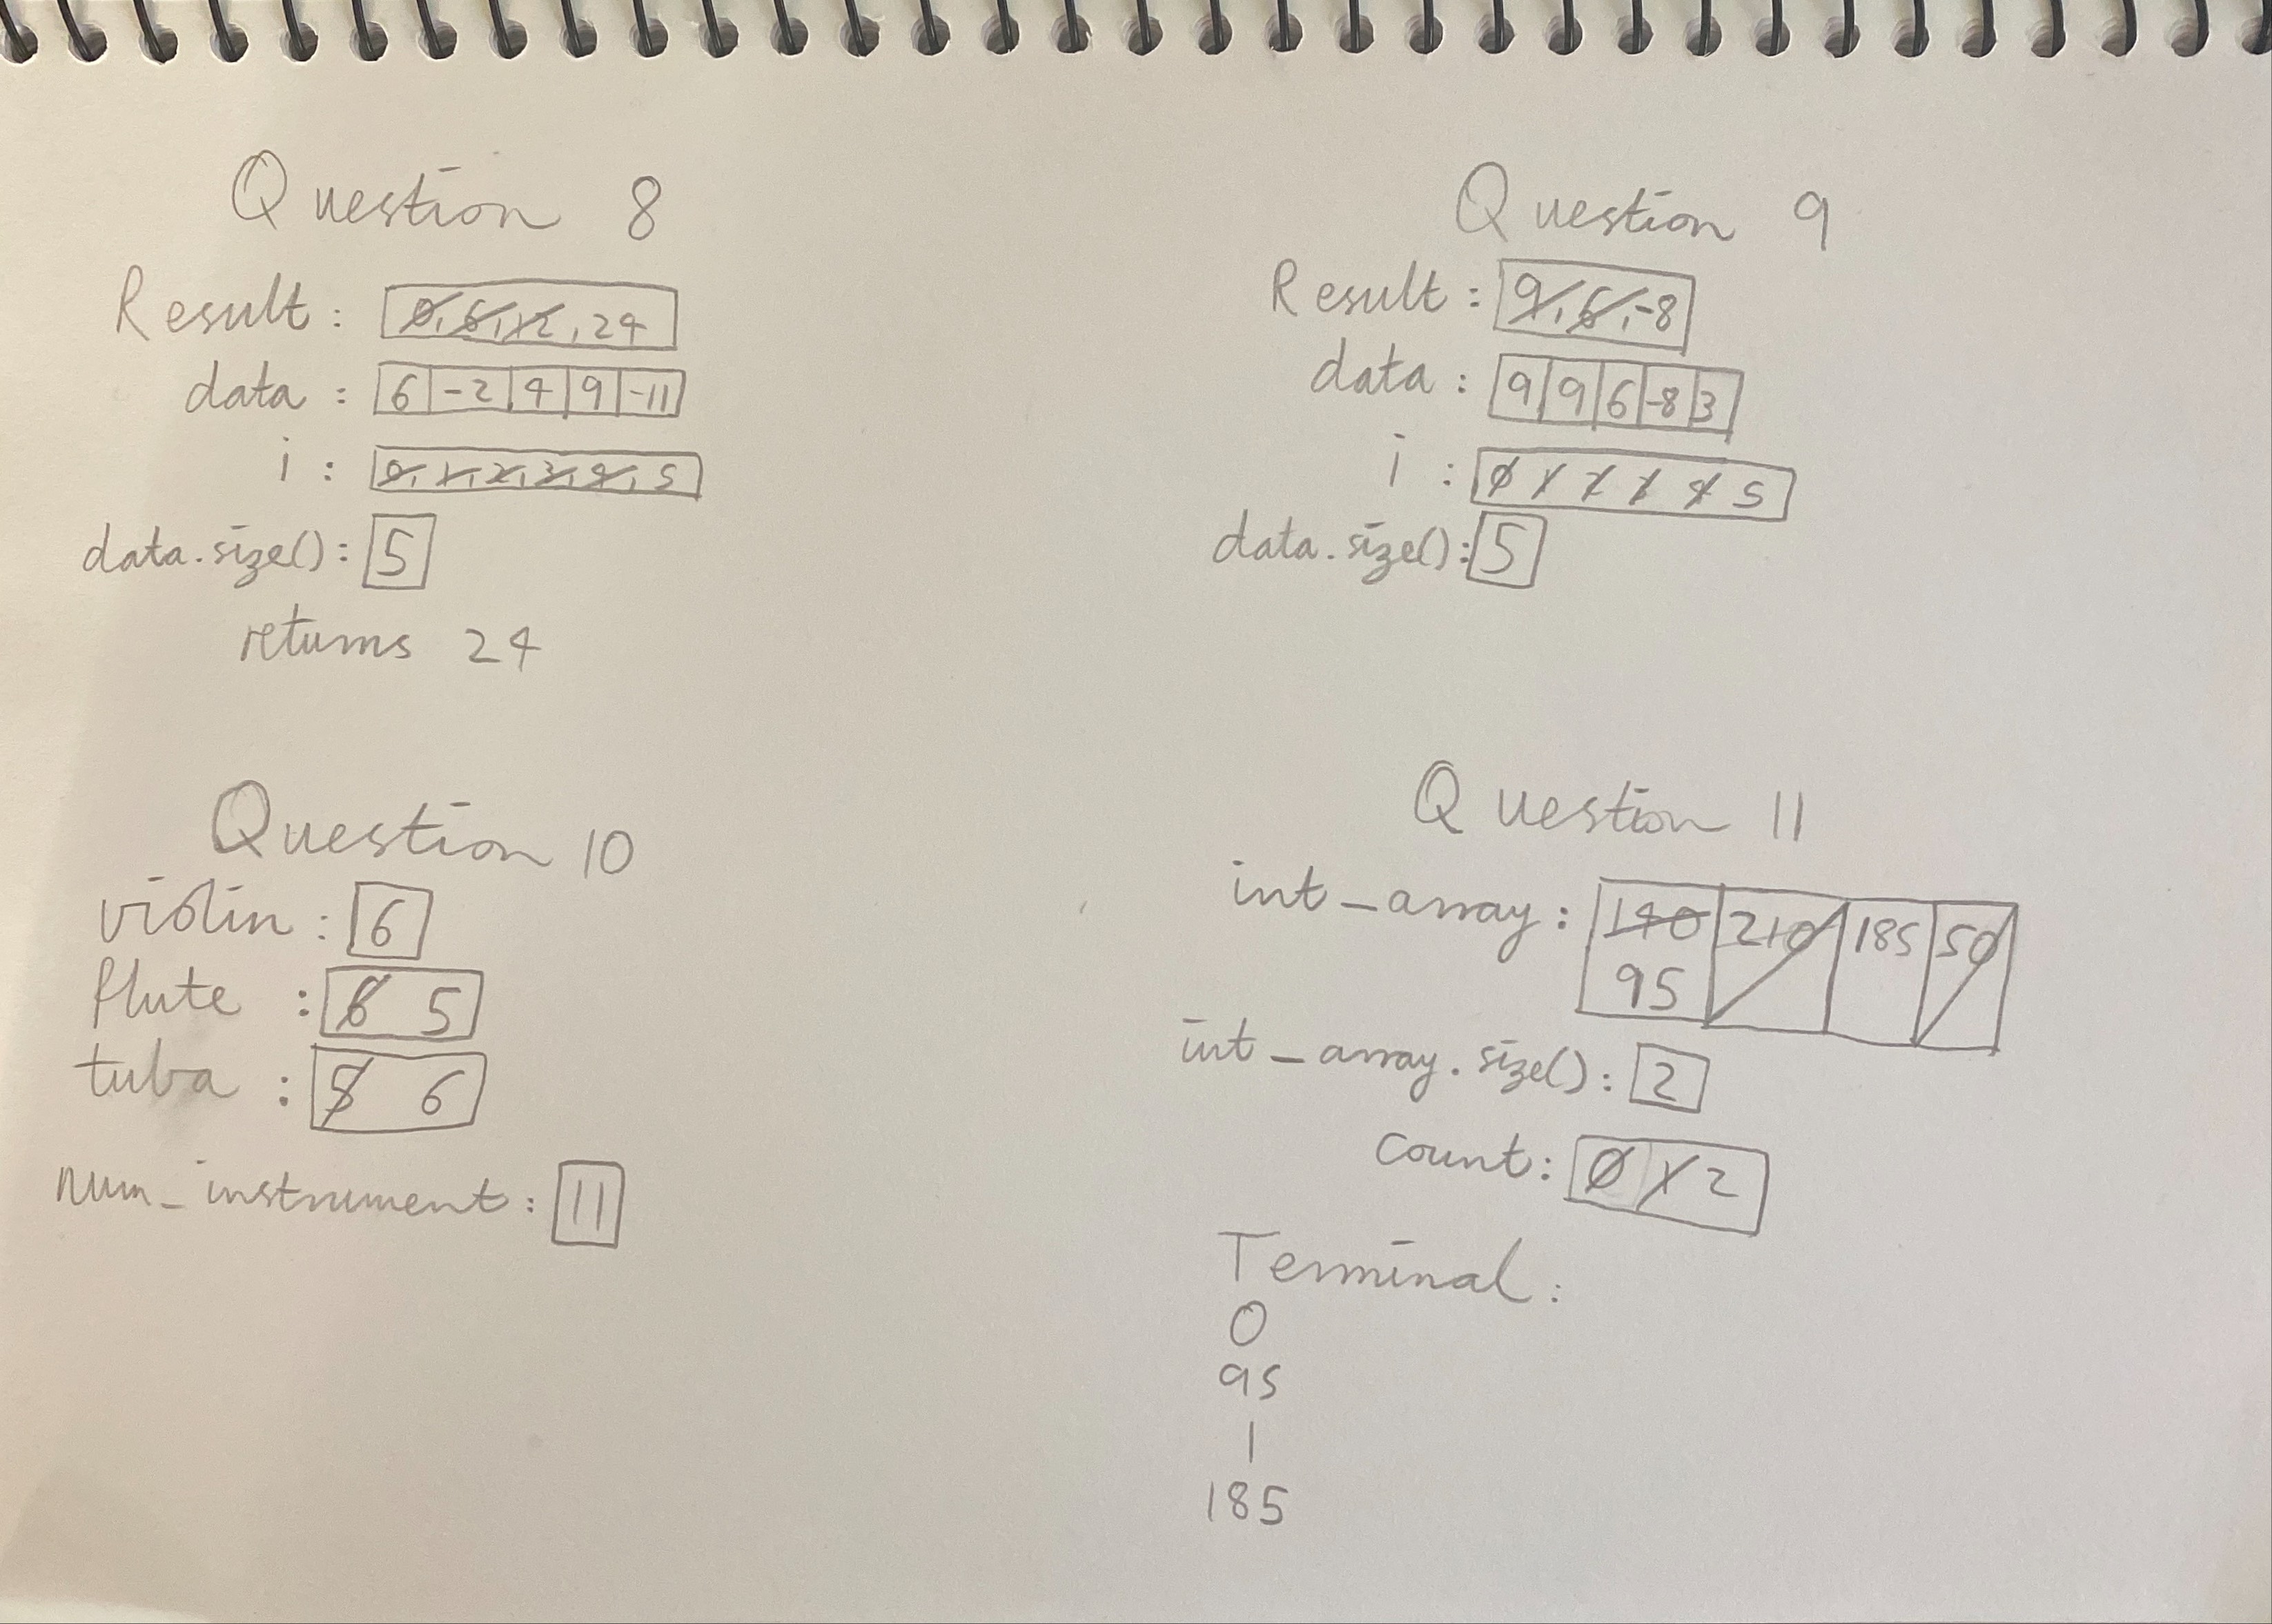 Question 8
Result: 0, 6, 12, 24
data: 6 -2 4 9 -11
i: 0, 1, 2, 3, 4, 5
data.size(): 5
returns 24
Question 9
Result: 9, 6, -8
data: 9 9 6 -8 3
i: 0 1 2 3 4 5
data.size(): 5
Question 10
violin: 6
flute: 6 5
tuba: 5 6
num_instrument: 11
Question 11
int_array: 140 210 185 50
95
int_array.size(): 2
count: 0 1 2
Terminal:
0
95
1
185